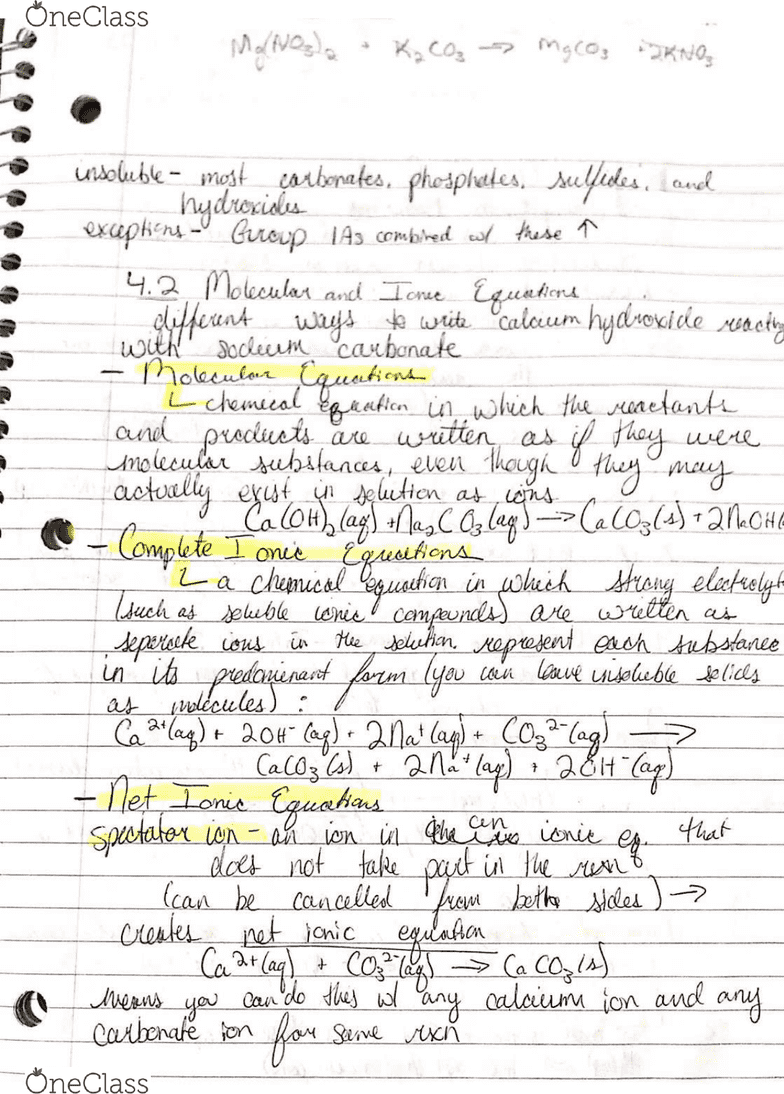 OneClass
Mg(NO₃)₂ + K₂CO₃ → MgCO₃ + 2KNO₃
insoluble - most carbonates, phosphates, sulfides, and
hydroxides
exceptions - Group IAs combined w/ these ↑
4.2 Molecular and Ionic Equations
different ways to write calcium hydroxide reacting
with sodium carbonate
- Molecular Equations
↳ chemical equation in which the reactants
and products are written as if they were
molecular substances, even though they may
actually exist in solution as ions
Ca(OH)₂(aq) + Na₂CO₃(aq) → CaCO₃(s) + 2NaOH(
- Complete Ionic Equations
↳ a chemical equation in which strong electrolyt
(such as soluble ionic compounds) are written as
seperate ions in the solution. represent each substance
in its predominant form (you can leave insoluble solids
as molecules) :
Ca²⁺(aq) + 2OH⁻(aq) + 2Na⁺(aq) + CO₃²⁻(aq) →
CaCO₃(s) + 2Na⁺(aq) + 2OH⁻(aq)
- Net Ionic Equations
spectator ion - an ion in an ionic eq. that
does not take part in the rxn
(can be cancelled from both sides) →
creates net ionic equation
Ca²⁺(aq) + CO₃²⁻(aq) → CaCO₃(s)
means you can do this w/ any calcium ion and any
carbonate ion for same rxn
OneClass